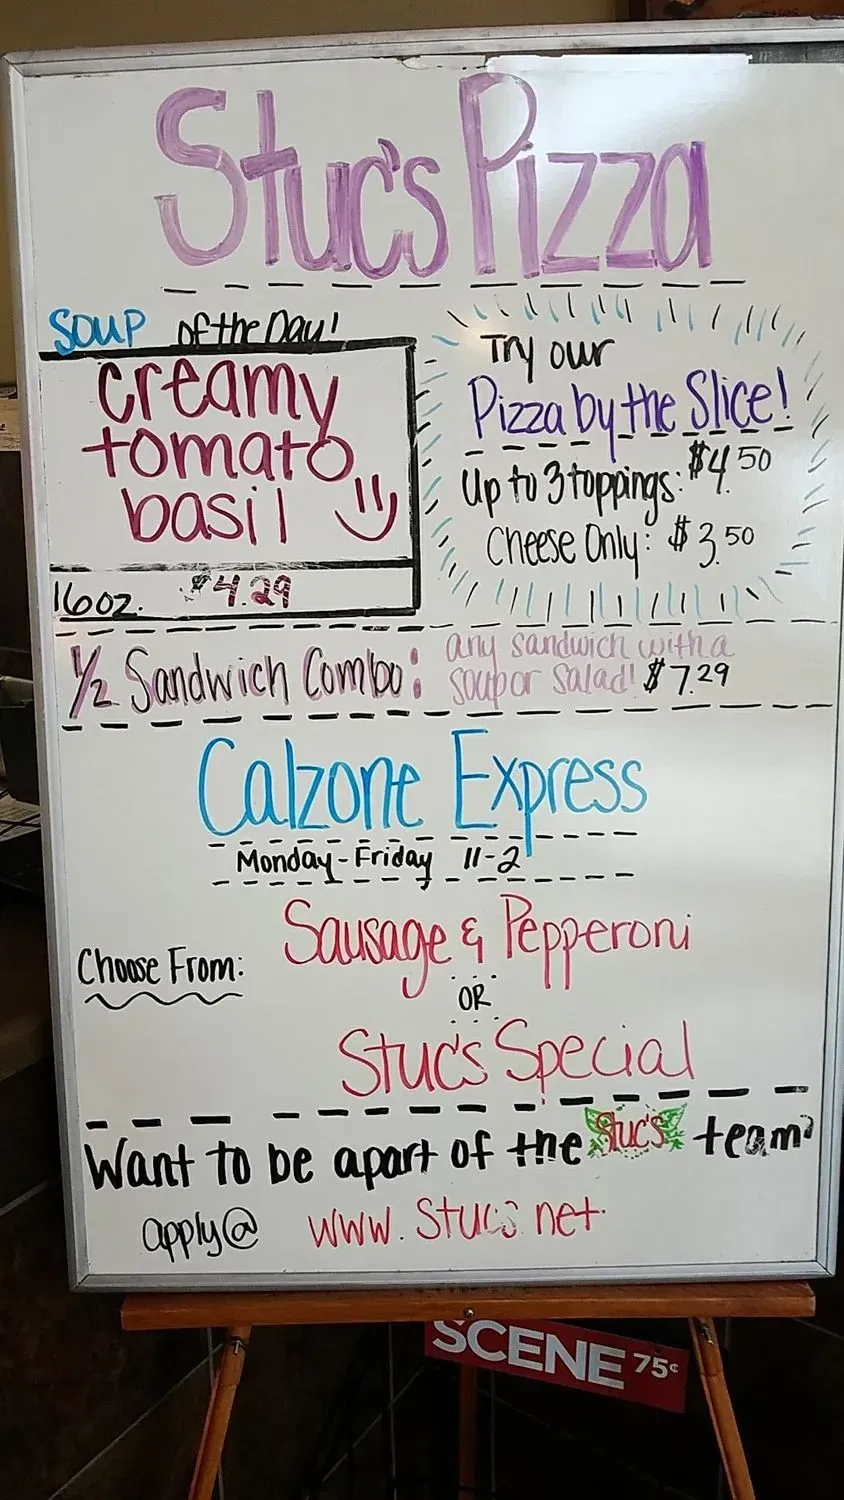 Stuc's Pizza
Soup of the Day!
creamy
tomato
basil
16oz. $4.29
Try our
Pizza by the Slice!
Up to 3 toppings: $4.50
Cheese Only: $3.50
1/2 Sandwich Combo: any sandwich with a
soup or salad! $7.29
Calzone Express
Monday-Friday 11-2
Choose From:
Sausage & Pepperoni
OR
Stuc's Special
Want to be apart of the Stuc's team?
apply@ www.stucs.net
SCENE 75¢